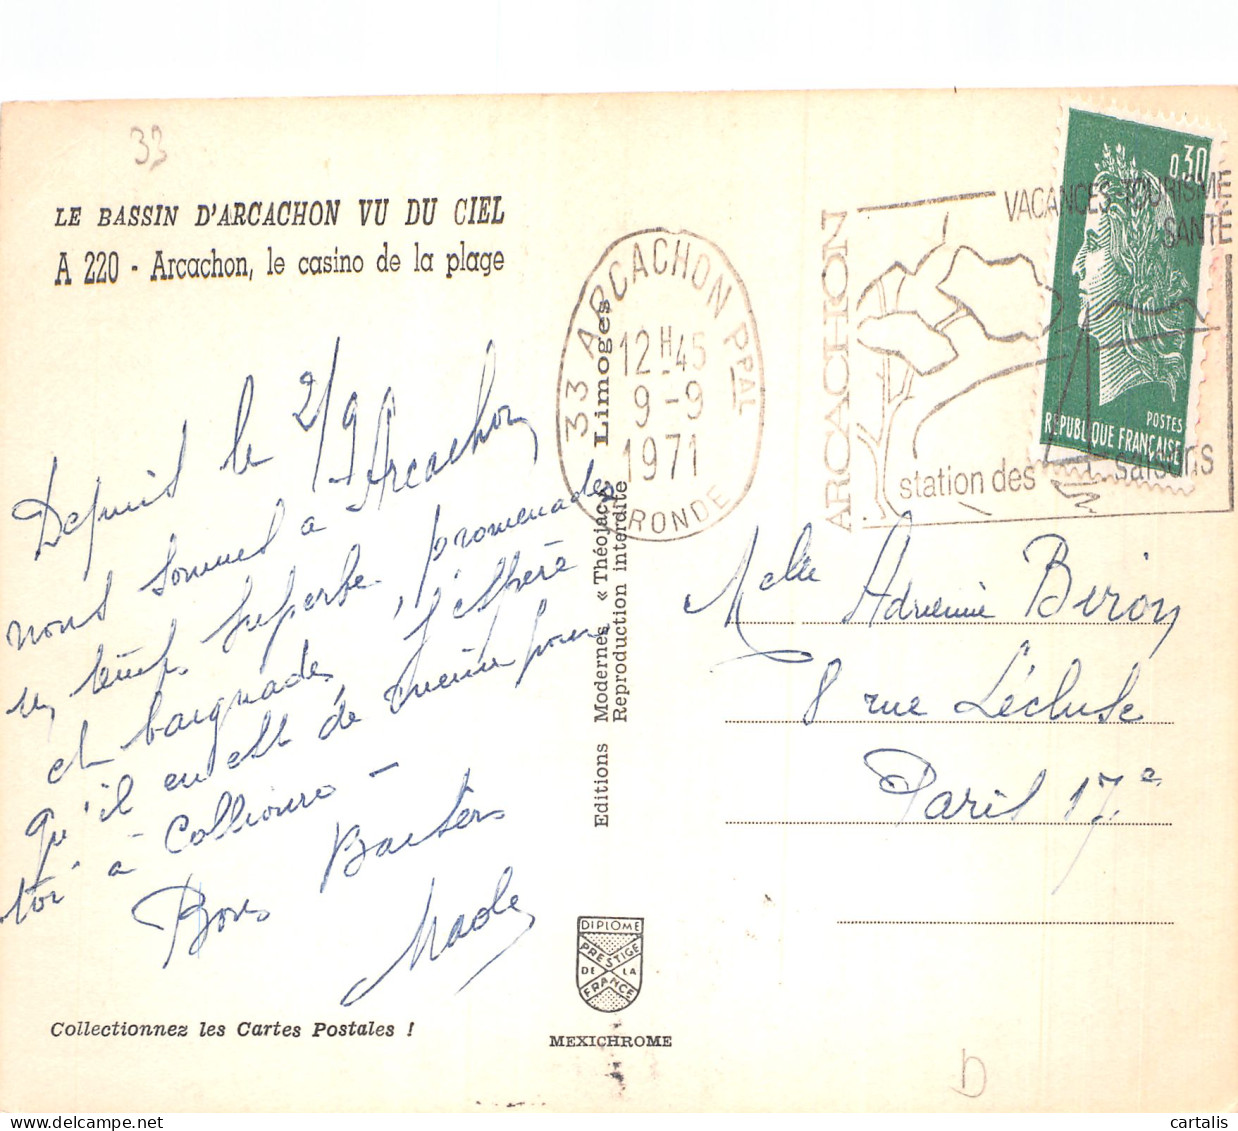 33
LE BASSIN D'ARCACHON VU DU CIEL
A 220 - Arcachon, le casino de la plage
Depuis le 2/9
nous sommes à Arcachon
un temps superbe, promenades
et baignades, j'espère
qu'il en est de même pour
toi à Collioure -
Bons Baisers
Collectionnez les Cartes Postales !
Editions Modernes « Théojac » Limoges
Reproduction interdite
DIPLOME
PRESTIGE
DE LA
FRANCE
MEXICHROME
33 ARCACHON PPAL
12H45
9-9
1971
GIRONDE
ARCACHON
VACANCES-TOURISME
SANTE
station des saisons
0,30
POSTES
REPUBLIQUE FRANÇAISE
Melle Adrienne Biron
8 rue Lécluse
Paris 17e
D
cartalis